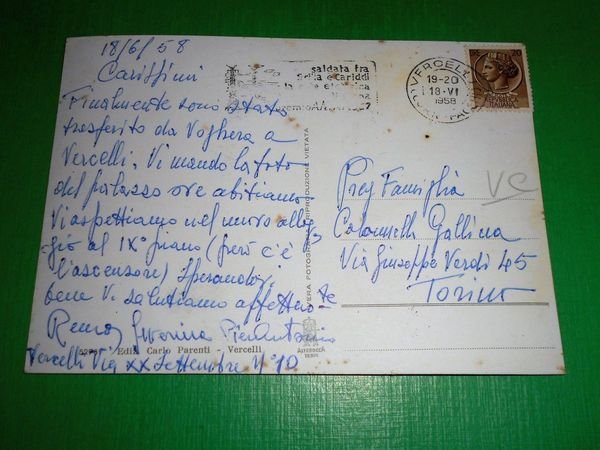 18/6/58
Carissimi
Finalmente sono stato
trasferito da Voghera a
Vercelli. Vi mando la foto
del palazzo ove abitiamo
Vi aspettiamo nel nuovo allog
gio al IX° piano (però c'è
l'ascensore) Sperandovi
bene Vi salutiamo affettuos te
Remo, Severina Pierantonio
Vercelli Via XX Settembre N° 10
Ediz. Carlo Parenti - Vercelli
VERA FOTOGRAFIA RIPRODUZIONE VIETATA
ALTEROCCA
TERNI
saldata fra
Scilla e Cariddi
VERCELLI
19-20
18·VI
1958
ITALIANA
VC
Preg Famiglia
Colonnelli Gallina
Via Giuseppe Verdi 45
Torino